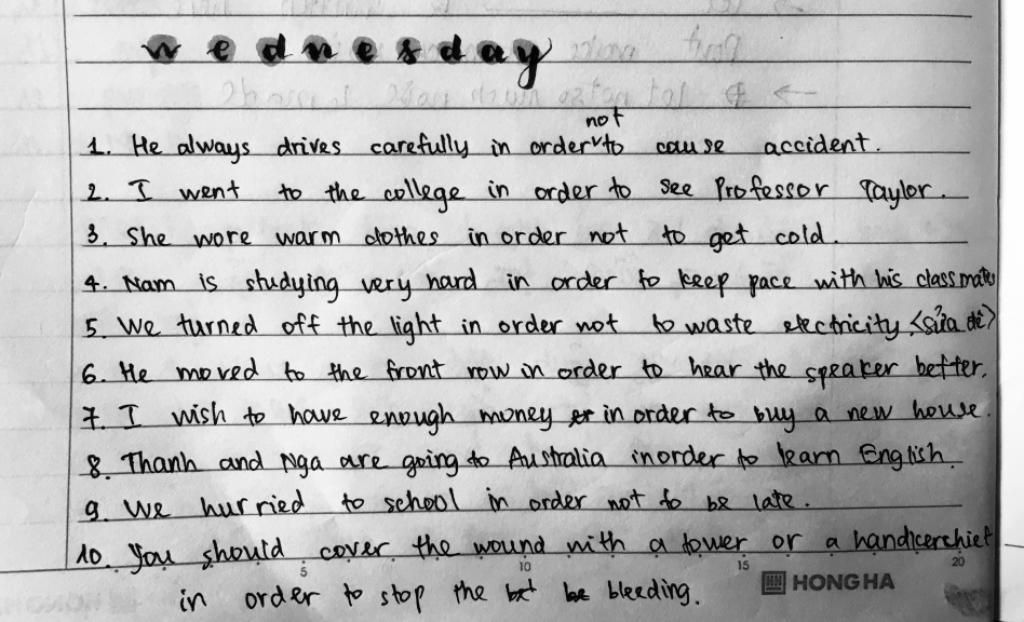 wednesday
1. He always drives carefully in order not to cause accident.
2. I went to the college in order to see Professor Taylor.
3. She wore warm clothes in order not to get cold.
4. Nam is studying very hard in order to keep pace with his classmates
5. We turned off the light in order not to waste electricity <sửa đề>
6. He moved to the front row in order to hear the speaker better.
7. I wish to have enough money in order to buy a new house.
8. Thanh and Nga are going to Australia inorder to learn English.
9. We hurried to school in order not to be late.
10. You should cover the wound with a tower or a handicerchief
5 10 15 20
HONG HA
in order to stop the bleeding.